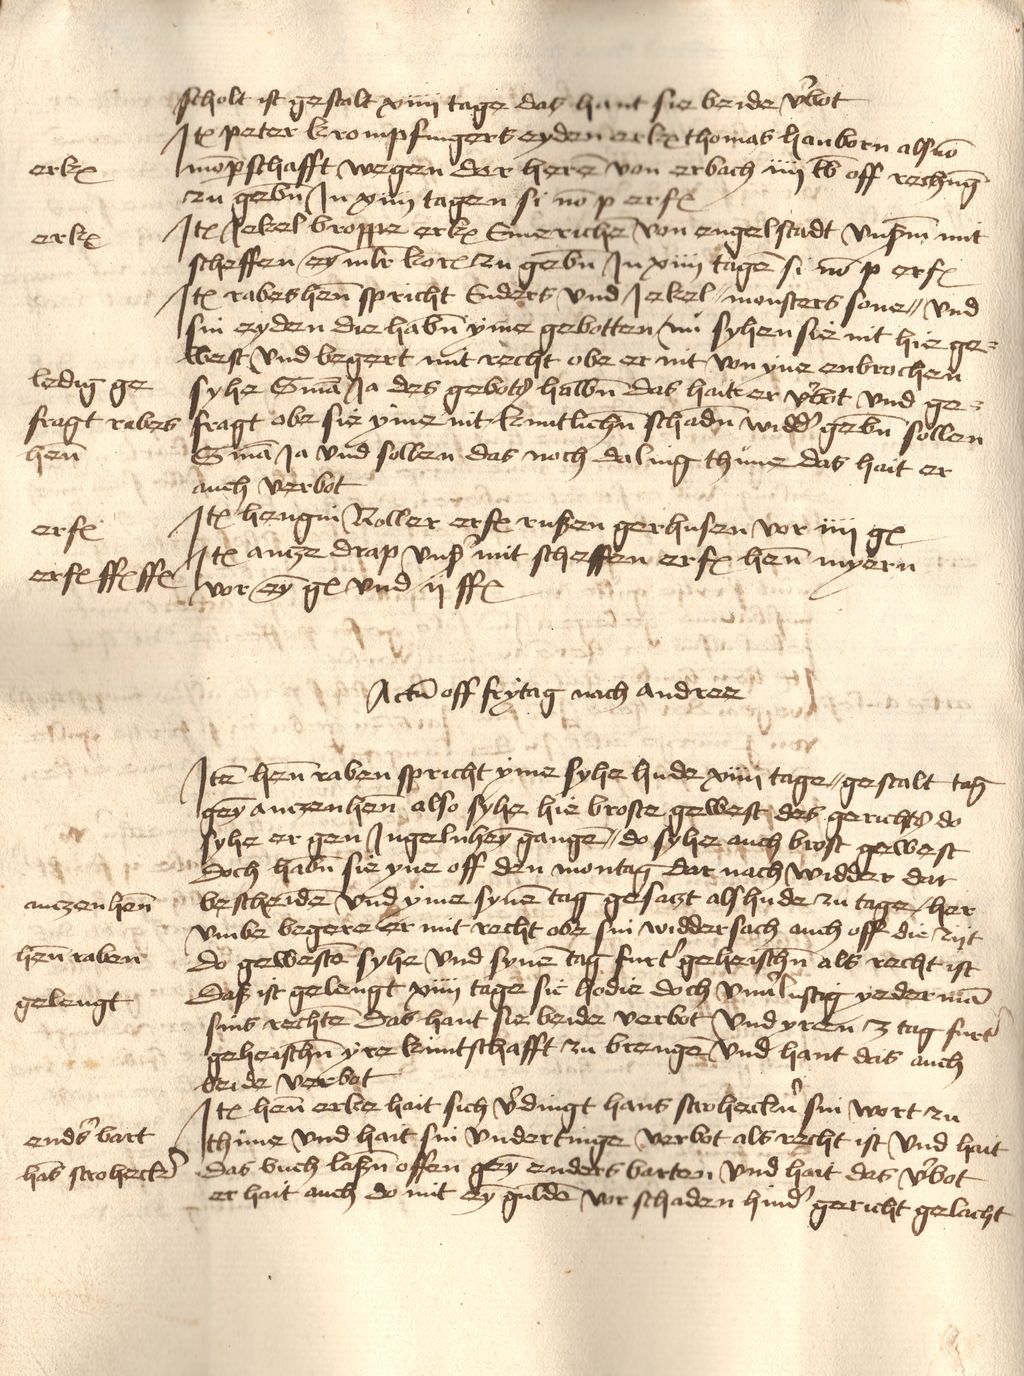 scholt ist gestalt xiiii tage das hant sie beide v'bot
It(em) peter krompfingers eyden erk(ennt) thomas hanborn als vo(n)
erk(ennt)
mo(m)p(ar)schafft wegen der here(n) von erbach iiii lb off rechnu(n)g
zu gebn In xiiii tagen si no(n) p(fand) erf(olgt)
erk(ennt)
It(em) Jekel broppe erk(ennt) Emeriche(n) von engelstadt mit
scheffen ey(n) korn zu gebn In xiiii tage(n) si no(n) p(fand) erf(olgt)
It(em) rabeshen(n) spricht Enders und Jekel monsters sone und
sin eyden die habn yme gebotten nu syhen sie nit hie ge=
west und begert mit recht obe er nit von yne enbrochen
ledig ge
syhe S(ente)n(ci)a Ja des gebots halbn das hait er v'bot und ge=
fragt rabes
fragt obe sie yme nit kuntlichn schadn widd' gebn sollen
hen(n)
S(ente)n(ci)a Ja und sollen das noch daling thune das hait er
auch verbot
erf(olgt)
It(em) hengin Roller erf(olgt) russen gerhusen vor iiii g(u)l(den)
It(em) antze drap mit scheffen erf(olgt) hen(n) myern
erf(olgt)
vor ey(n) g(u)l(den) und ii
Actu(m) off frytag nach Andree
Ite(m) hen(n) raben spricht yme syhe hude xiiii tage gestalt tag
gey(n) antzenhen(n) also syhe hie broste gewest des gerichts do
syhe er gen Ingelnhey(m) gange(n) do syhe auch brost gewest
doch habn sie yne off den montag dar nach widder dar
antzenhen(n)
bescheide(n) und yme syne(n) tag gesatzt als hude zu tage her
umbe begere er mit recht obe sin widdersach auch off die zijt
hen(n) raben
do geweste(n) syhe und syne(n) tag furt' geheischn als recht ist
gelengt
Daß ist gelengt xiiii tage sic hodie doch unv(er)lustig yederma(n)
sins rechte(n) das hant sie beide verbot und yren 3 tag furt'
geheischn yre kuntschafft zu brenge(n) und hant das auch
beide verbot
It(em) hen(n) erke hait sich v'dingt hans stroheckn' sin wort zu
end's bart
thune und hait sin underdinge verbot als recht ist und hait
ha(n)s strohecker
das buch laßn offen gey(n) enders barten und hait das v'bot
er hait auch do mit ey(n) gulde(n) vor schaden hind' gericht gelacht